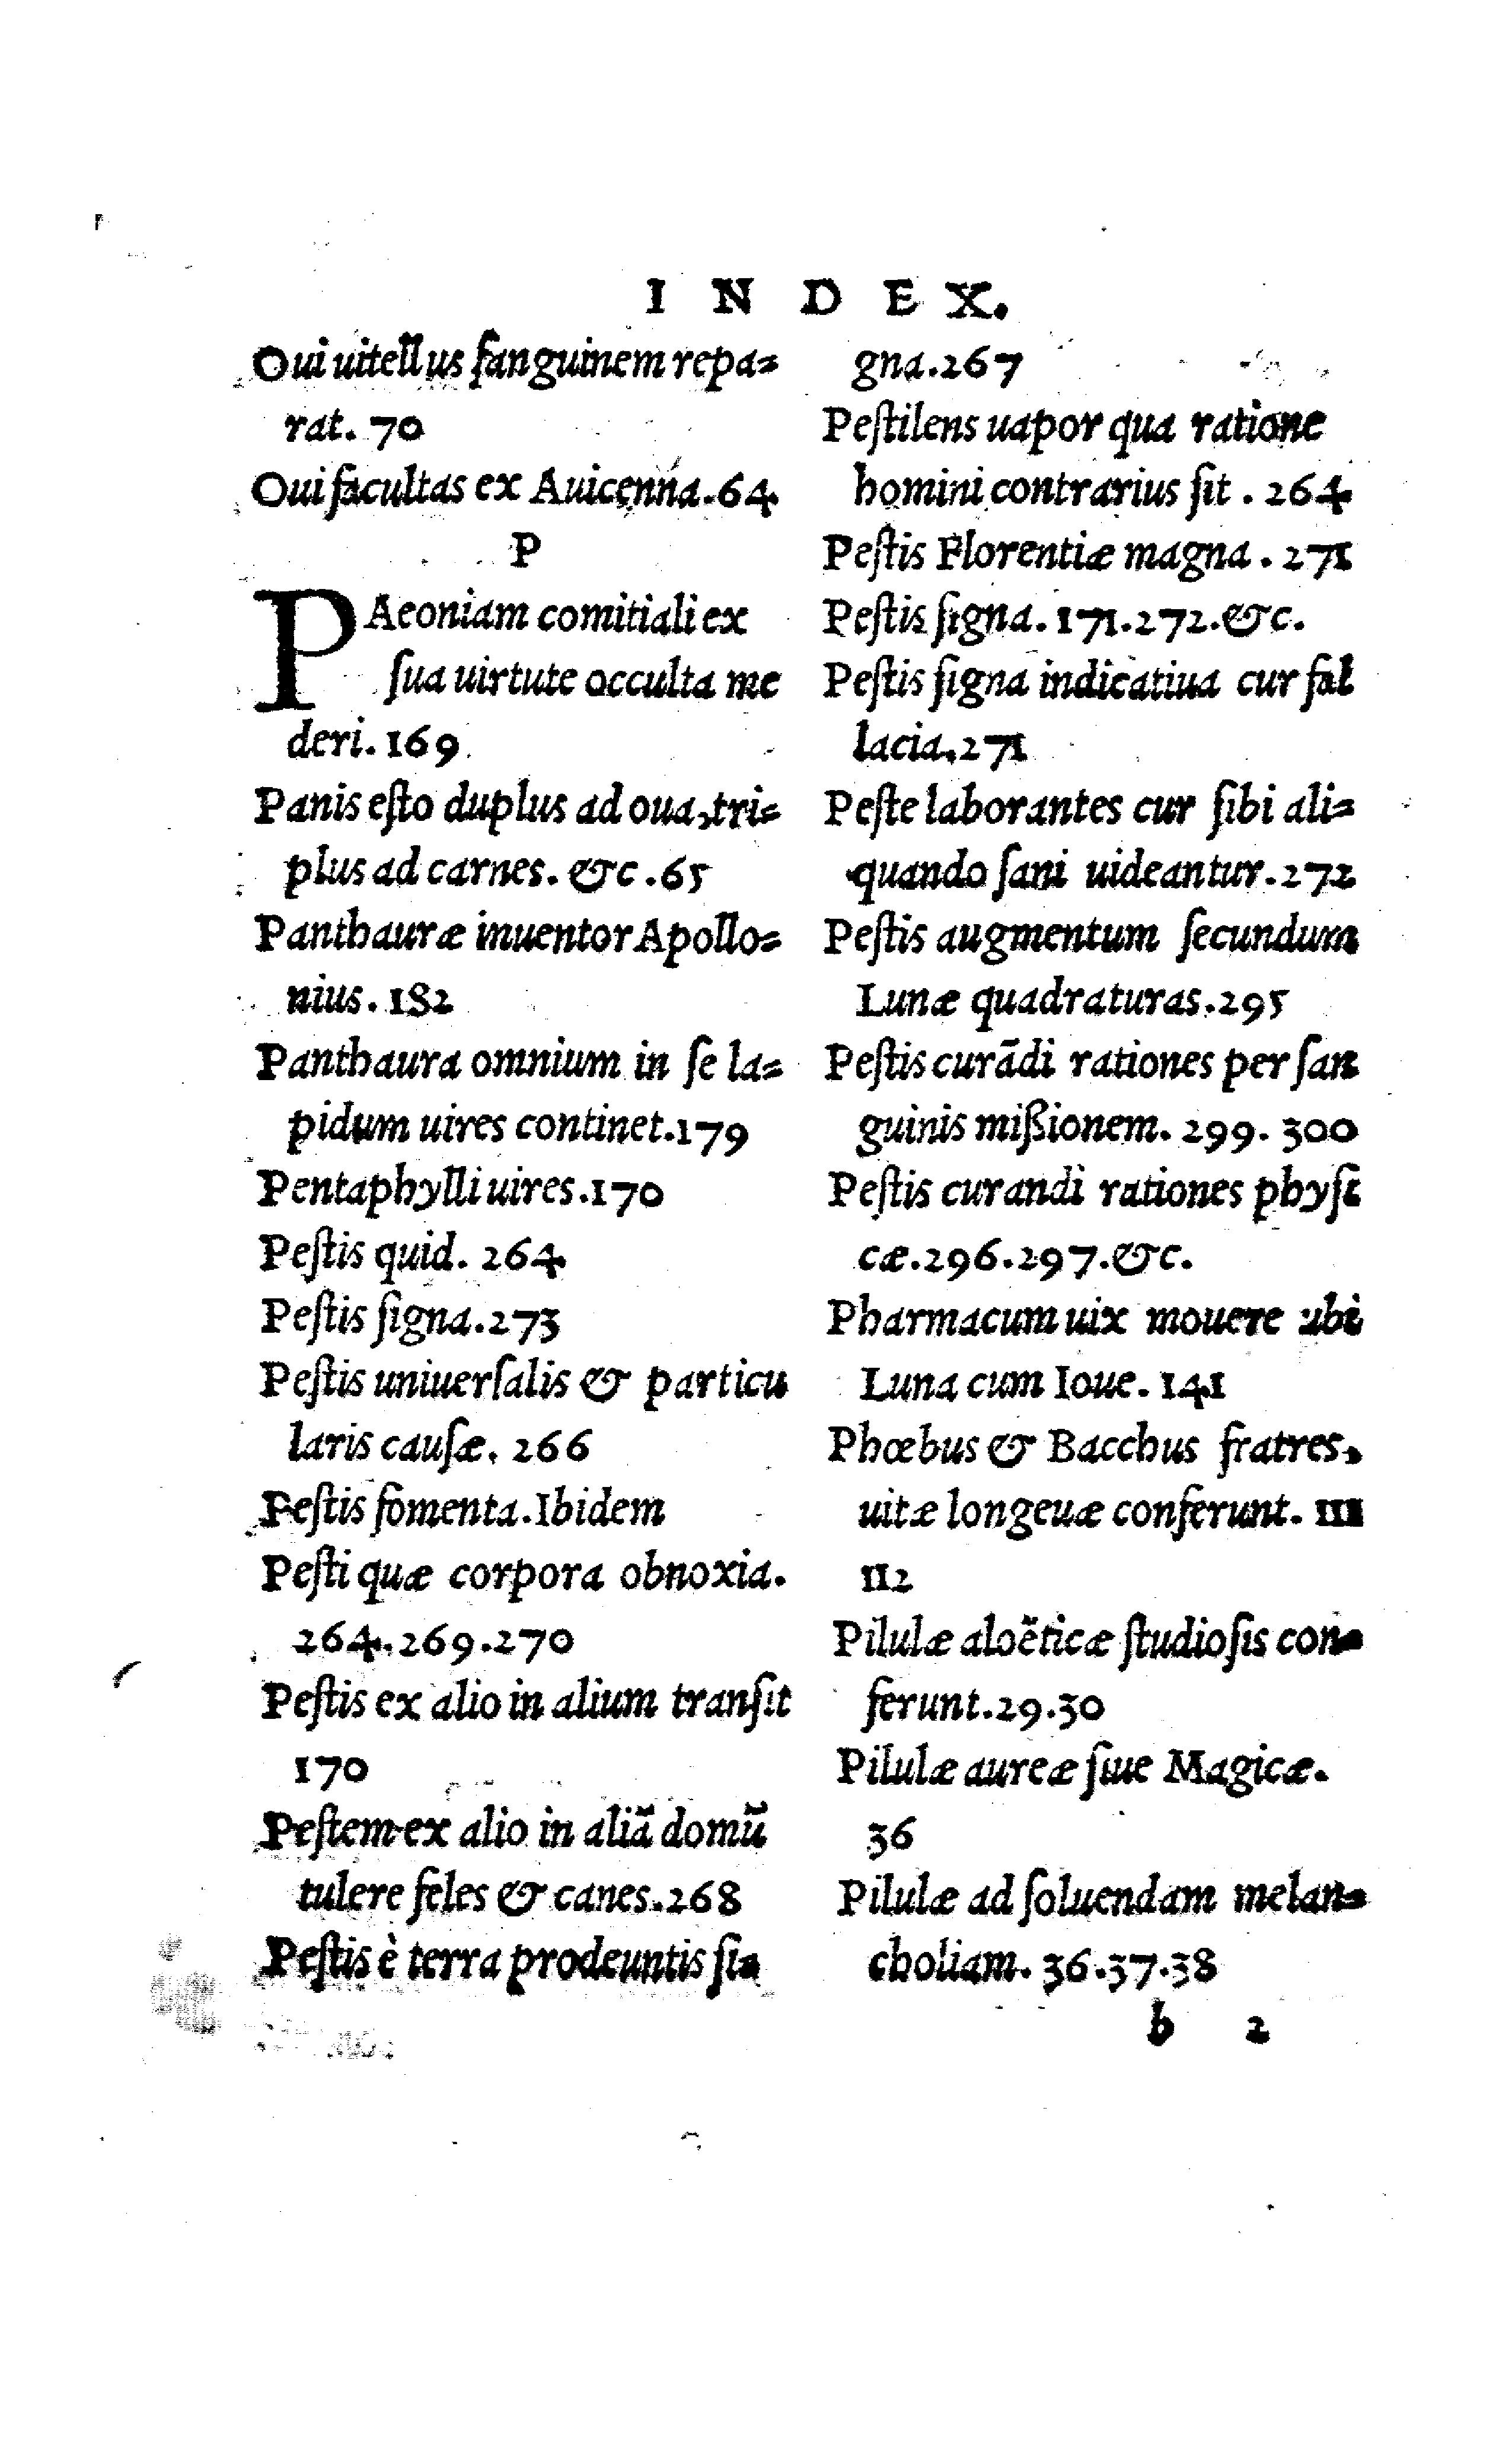 INDEX.
Oui uitellus ſanguinem repa-
rat. 70
Oui facultas ex Auicenna. 64
P
PAeoniam comitiali ex
ſua uirtute occulta me
deri. 169
Panis eſto duplus ad oua, tri-
plus ad carnes. &c. 65
Panthauræ inuentor Apollo-
nius. 182
Panthaura omnium in ſe la-
pidum uires continet. 179
Pentaphylli uires. 170
Peſtis quid. 264
Peſtis ſigna. 273
Peſtis uniuerſalis & particu
laris cauſæ. 266
Peſtis fomenta. Ibidem
Peſti quæ corpora obnoxia.
264. 269. 270
Peſtis ex alio in alium tranſit
170
Peſtem ex alio in aliā domū
tulere feles & canes. 268
Peſtis è terra prodeuntis ſi-
gna. 267
Peſtilens uapor qua ratione
homini contrarius ſit. 264
Peſtis Florentiæ magna. 271
Peſtis ſigna. 171. 272. &c.
Peſtis ſigna indicatiua cur fal
lacia. 271
Peſte laborantes cur ſibi ali-
quando ſani uideantur. 272
Peſtis augmentum ſecundum
Lunæ quadraturas. 295
Peſtis curādi rationes per ſan
guinis miſsionem. 299. 300
Peſtis curandi rationes phyſi
cæ. 296. 297. &c.
Pharmacum uix mouere ubi
Luna cum Ioue. 141
Phœbus & Bacchus fratres,
uitæ longeuæ conferunt. 111
112
Pilulæ aloëticæ ſtudioſis con-
ferunt. 29. 30
Pilulæ aureæ ſiue Magicæ.
36
Pilulæ ad ſoluendam melan-
choliam. 36. 37. 38
b 2